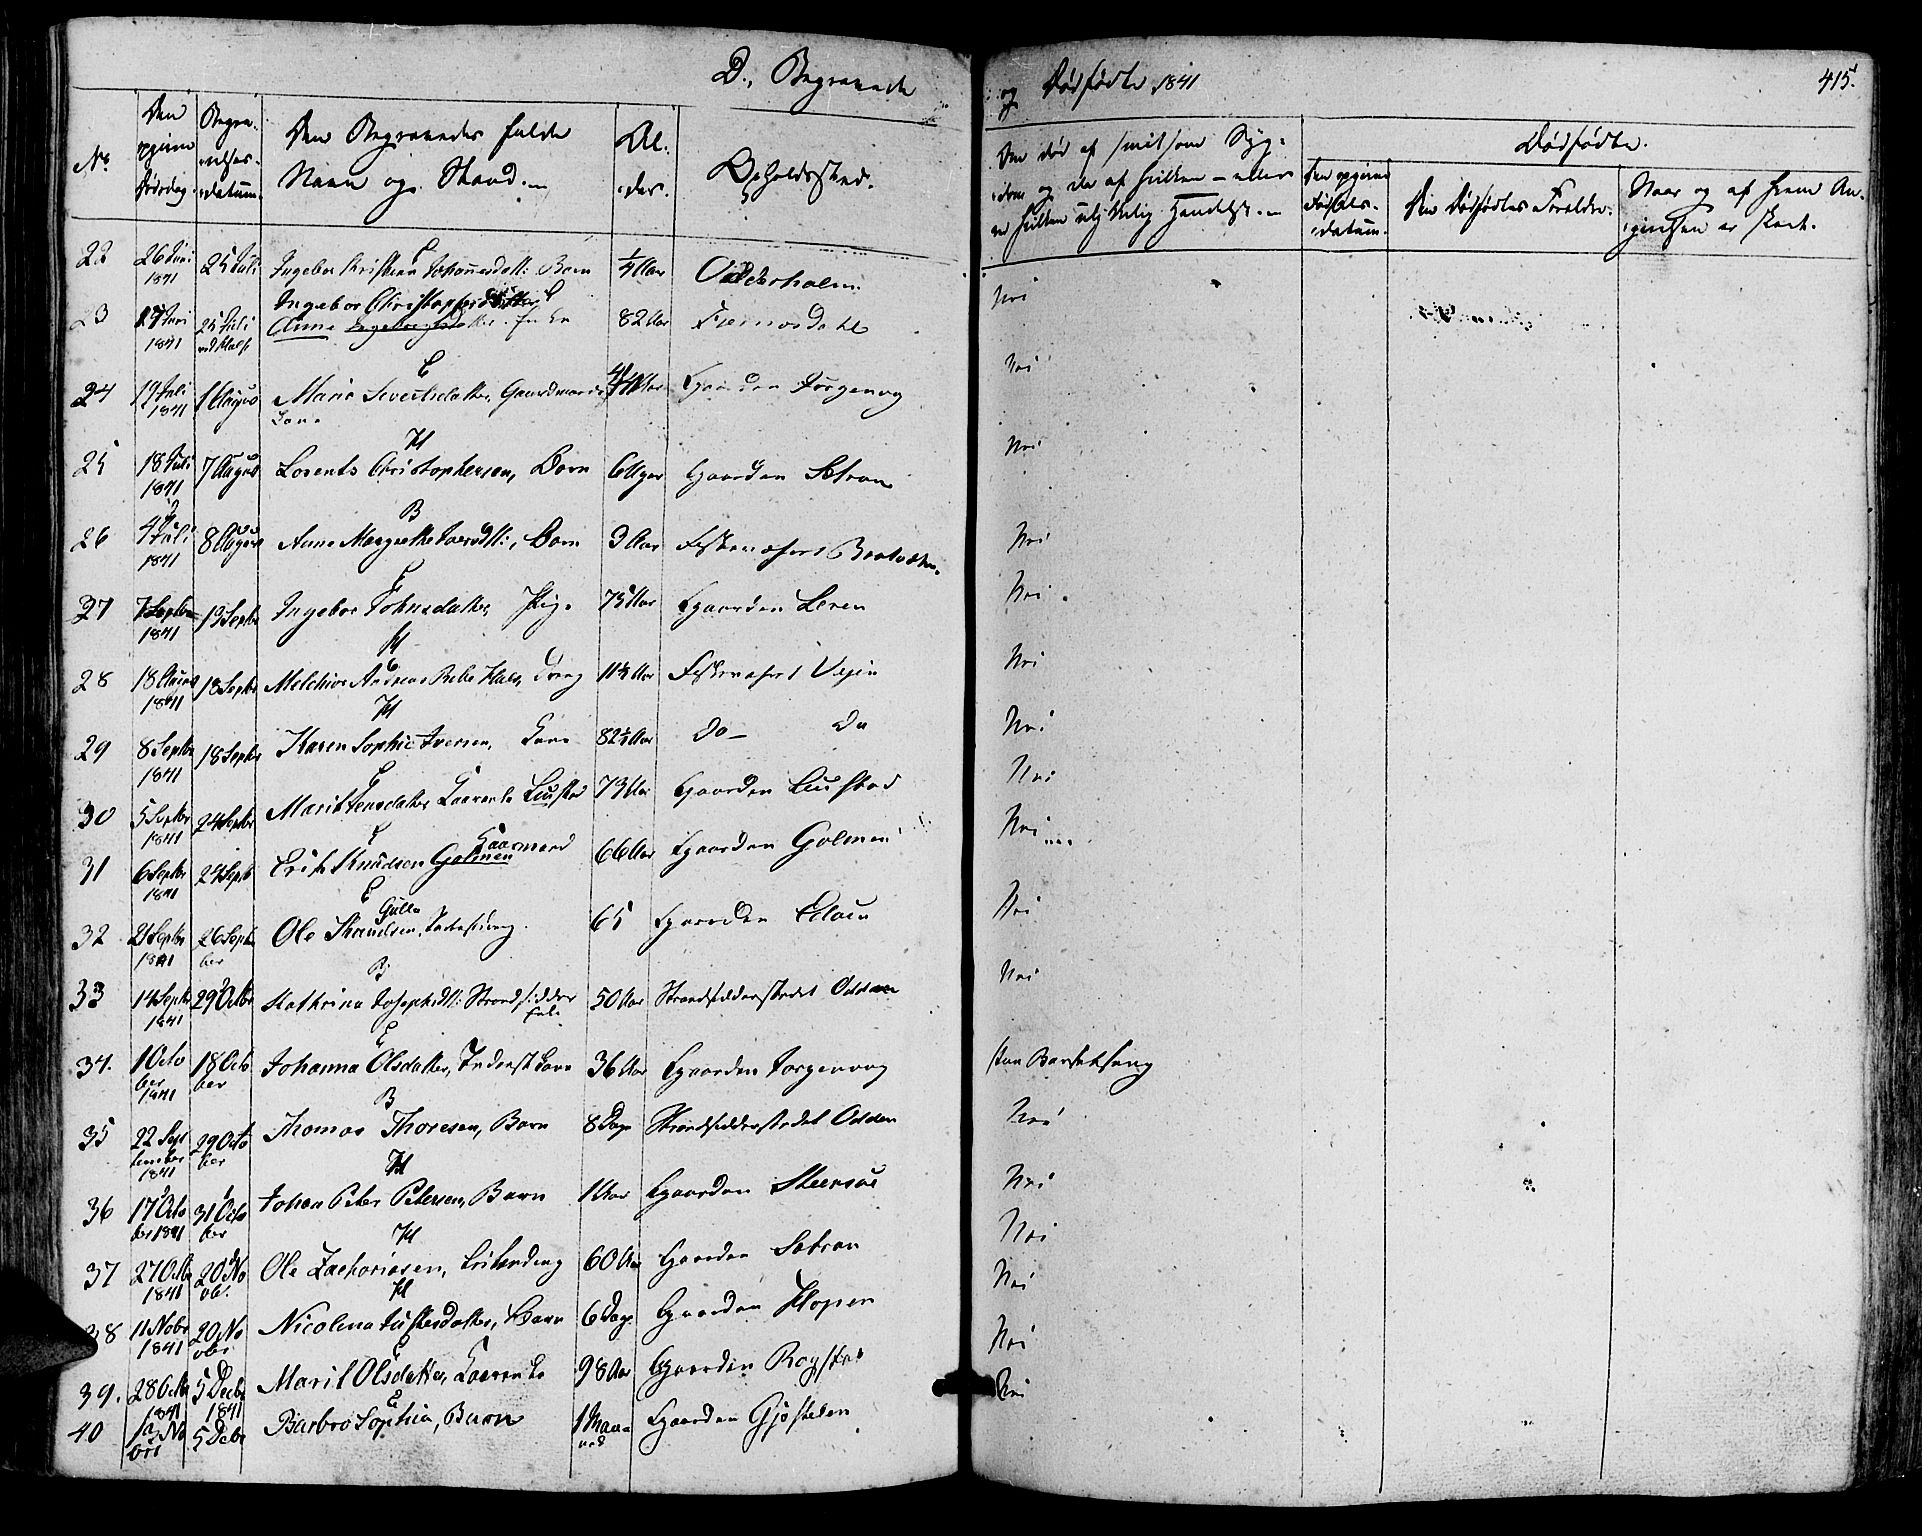 D., Begravede
og Dødfødte 1841
415.
No
Den opgivne Dødsdag.
Begravelses-datum.
Den Begravedes fulde Navn og Stand.
Alder.
Opholdssted.
Om død af smitsom Sygdom og da af hvilken – eller ved hvilken ulykkelig Hændelse.
Dødfødte.
Den opgivne Fødselsdatum.
Den Dødfødtes Forældre.
Naar og af hvem Angivelsen er skeet.
22 26 Juni 1841 25 Juli Ingebor Kristine Johannesdtt: Barn ¼ Aar Nei
E
23 1841 25 Juli Ingebor Christophersdatter 82 Aar Nei
Anne
E
24 19 Juli 1841 1 August Marie Sivertsdatter, Gaardmands Kone Gaarden Jørgenvog Nei
E
25 18 Juli 1841 7 August Lorents Christophersen, Barn 6 Uger Gaarden Sætran Nei
H
26 4 Juli 1841 8 August Anne Margrethe Iversdtt:, Barn 3 Aar Fiskeværet Bratvær Nei
B
27 7 Septbr 1841 13 Septbr Ingebor Johnsdatter Pige 75 Aar Gaarden Leren Nei
E
28 18 August 1841 18 Septbr Melchior Andreas Dreng 11½ Aar Fiskeværet Vejen Nei
H
29 8 Septbr 1841 18 Septbr Karen Sophie Iversen, Kone 82½ Aar do – do Nei
H
30 5 Septbr 1841 24 Septbr Marit Jensdatter Kaarenke Liustad 73 Aar Gaarden Liustad Nei
E
31 6 Septbr 1841 24 Septb Erik Knudsen Golmen Kaarmand 66 Aar Gaarden Golmen Nei
E
32 21 Septbr 1841 26 Septem ber Ole Knudsen, 65 Gaarden Nei
E
33 14 Septbr 1841 29 Octbr Kathrina Josephsdtt: Strandsidder 50 Aar Strandsidderstedet Odden Nei
B
34. 1 Octo ber 1841 18 Octo ber Johanna Olsdatter, Inderst Kone 36 Aar Gaarden Jørgenvog Barselseng
E
35 22 Sep tember 1841 29 Octo ber Thomas Thoresen, Barn 8 Dage Strandsidderstedet Odden Nei
B
36 17 Octo ber 1841 31 Octo ber Johan Peter Petersen, Barn 1 Aar Gaarden Steensøe Nei
H
37 27 Octbr 1841 20 No vb. Ole Zachariasen, 60 Aar Gaarden Sætran Nei
H
38 11 Novbr 1841 20 No vbr Nicolina Barn 6 Dage Gaarden Hopen Nei
H
39. 28 Octbr 1841 5 Decbr 1841 Marit Olsdatter, Kaarenke 98 Aar Gaarden Nei
E
40 No vbr 5 Decbr Barbro Sophia, Barn 1 Maaned Gaarden Gjøstølen Nei
E